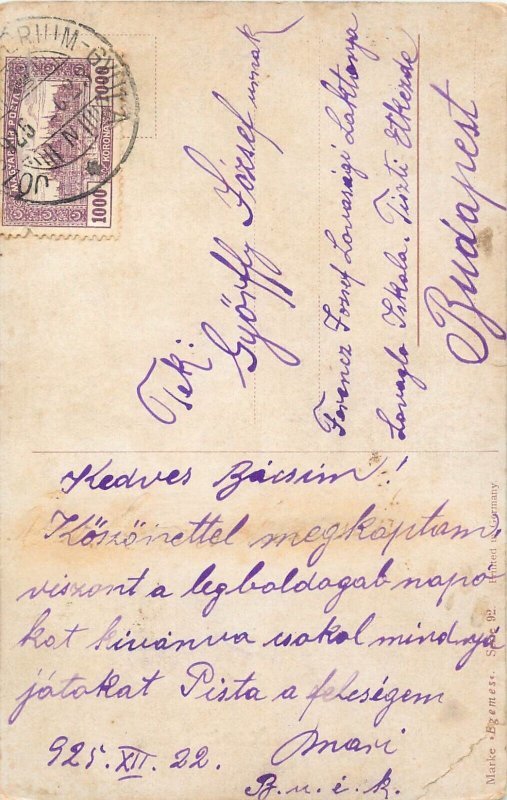 MAGYAR KIR. POSTA
1000 KORONA 1000
Tek:
Győrffy József urnak
Ferencz József Lovassági Laktanya
Lovagló Iskola. Tiszti Étkezde
Budapest
Kedves Bácsim!
Köszönettel megkaptam,
viszont a legboldogab napo
kat kivánva csokol mindnyá
játokat Pista a feleségem
925. XII. 22. Mari
B. u. é. k.
Marke »Egemes« Serie 92. Printed in Germany